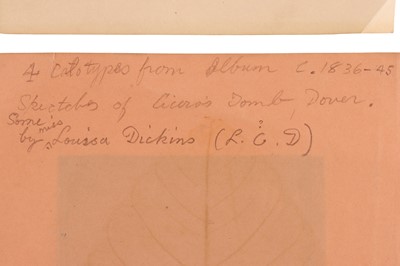 4 Calotypes from Album C. 1836-45
Sketches of Cicero's Tomb, Dover.
Some
by miss Louisa Dickins (L. C. D)